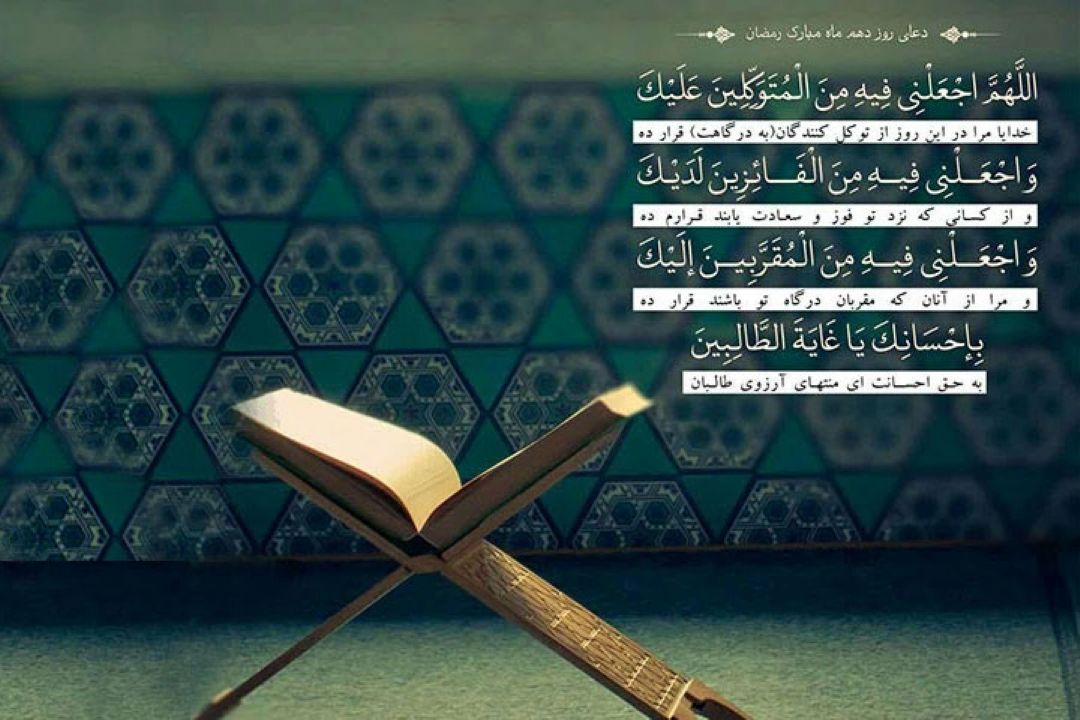 دعای روز دهم ماه مبارک رمضان
اللَّهُمَّ اجْعَلْنِی فِیهِ مِنَ الْمُتَوَکِّلِینَ عَلَیْکَ
خدایا مرا در این روز از توکل کنندگان(به درگاهت) قرار ده
وَ اجْعَلْنِی فِیهِ مِنَ الْفَائِزِینَ لَدَیْکَ
و از کسانی که نزد تو فوز و سعادت یابند قرارم ده
وَ اجْعَلْنِی فِیهِ مِنَ الْمُقَرَّبِینَ إلَیْکَ
و مرا از آنان که مقربان درگاه تو باشند قرار ده
بِإحْسَانِکَ یَا غَایَةَ الطَّالِبِینَ
به حق احسانت ای منتهای آرزوی طالبان